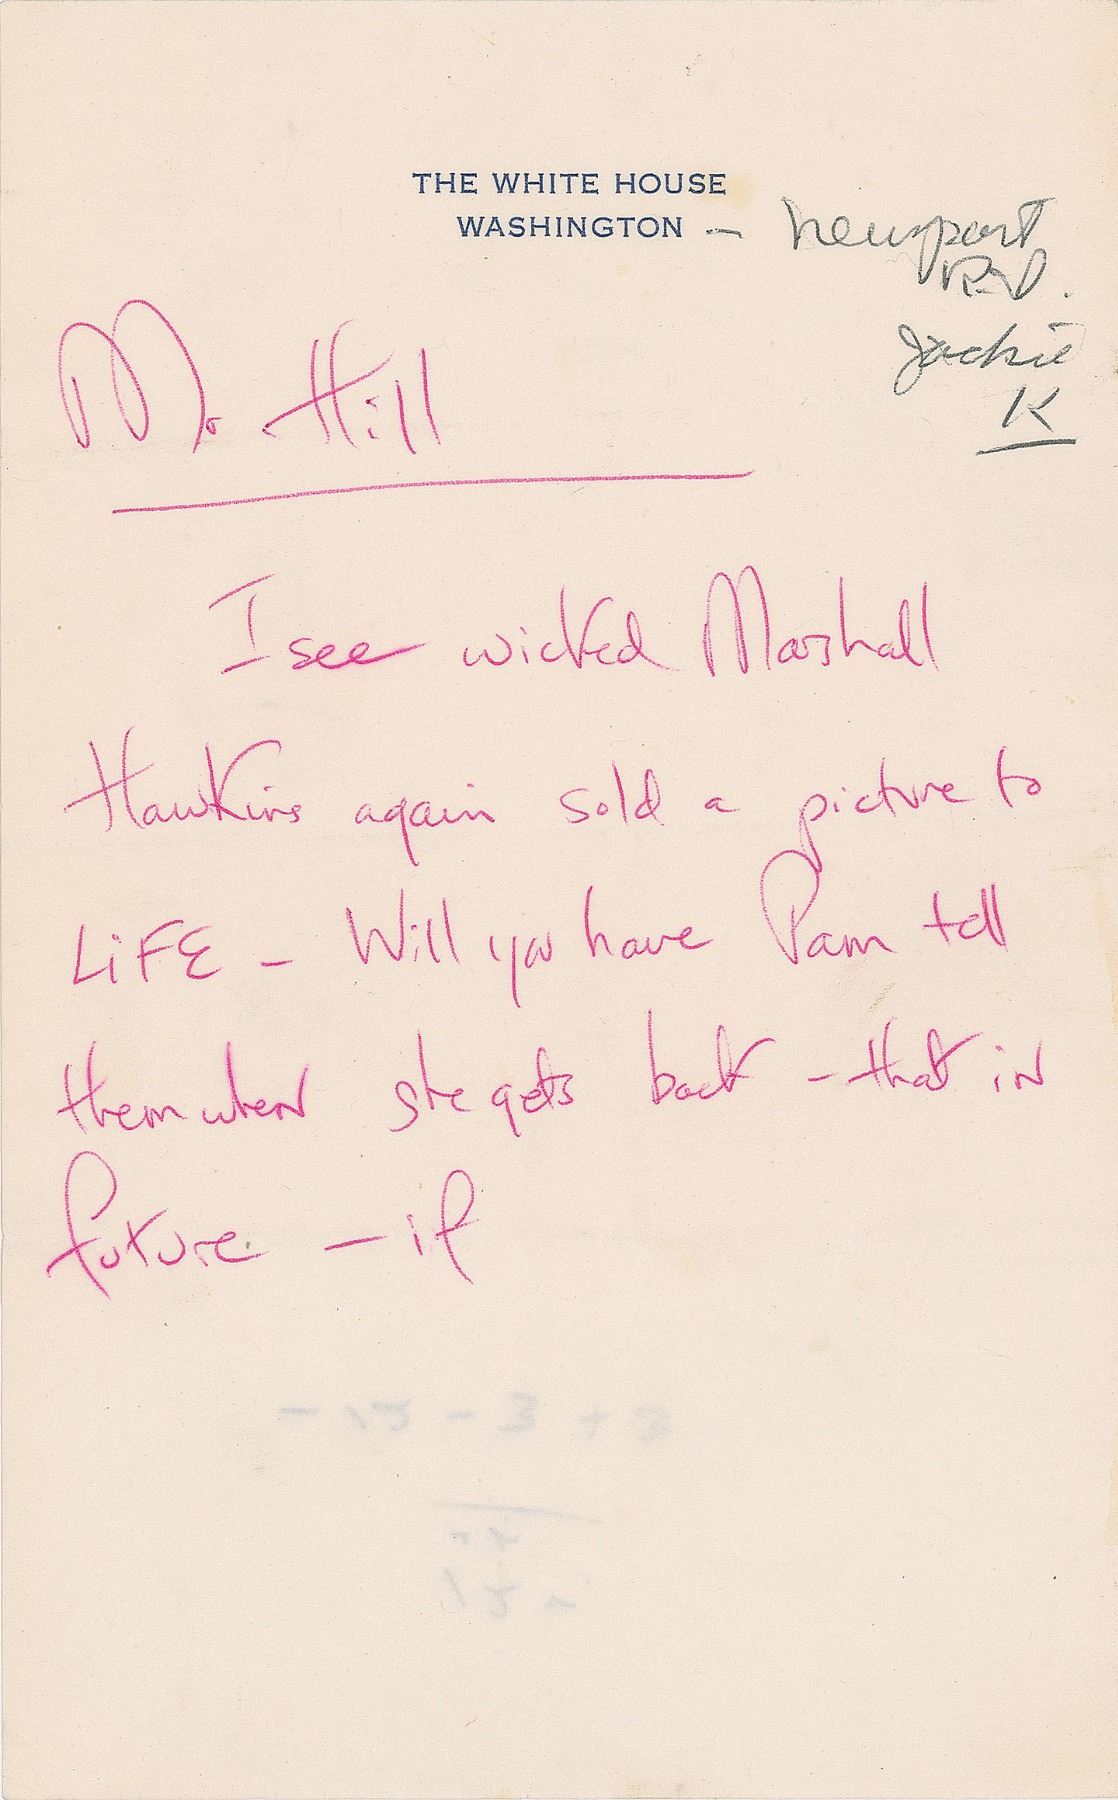 THE WHITE HOUSE
WASHINGTON — Newport
R.I.
Jackie
K
Mr. Hill
I see wicked Marshall
Hawkins again sold a picture to
LiFE – Will you have Pam tell
them when she gets back – that in
future – if